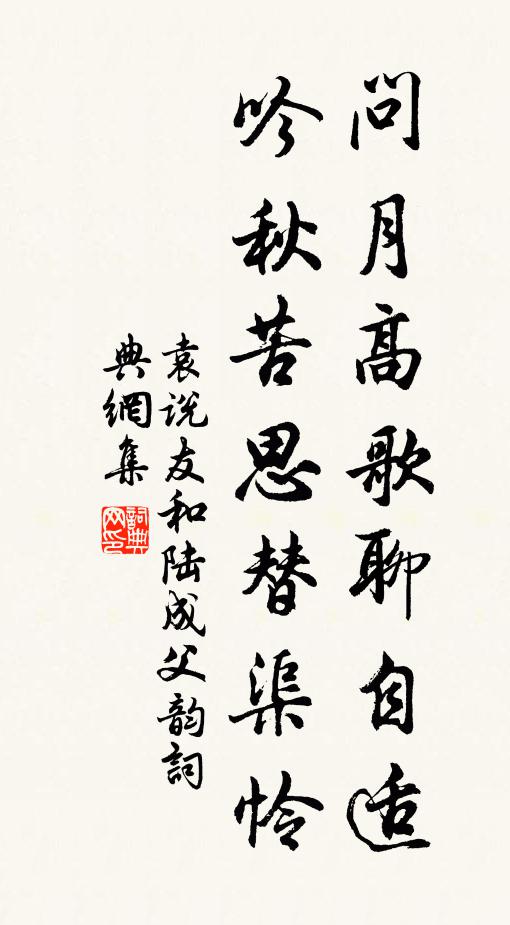 问月高歌聊自适
吟秋苦思替渠怜
袁说友和陆成父韵詞
典網集
詞典
网印